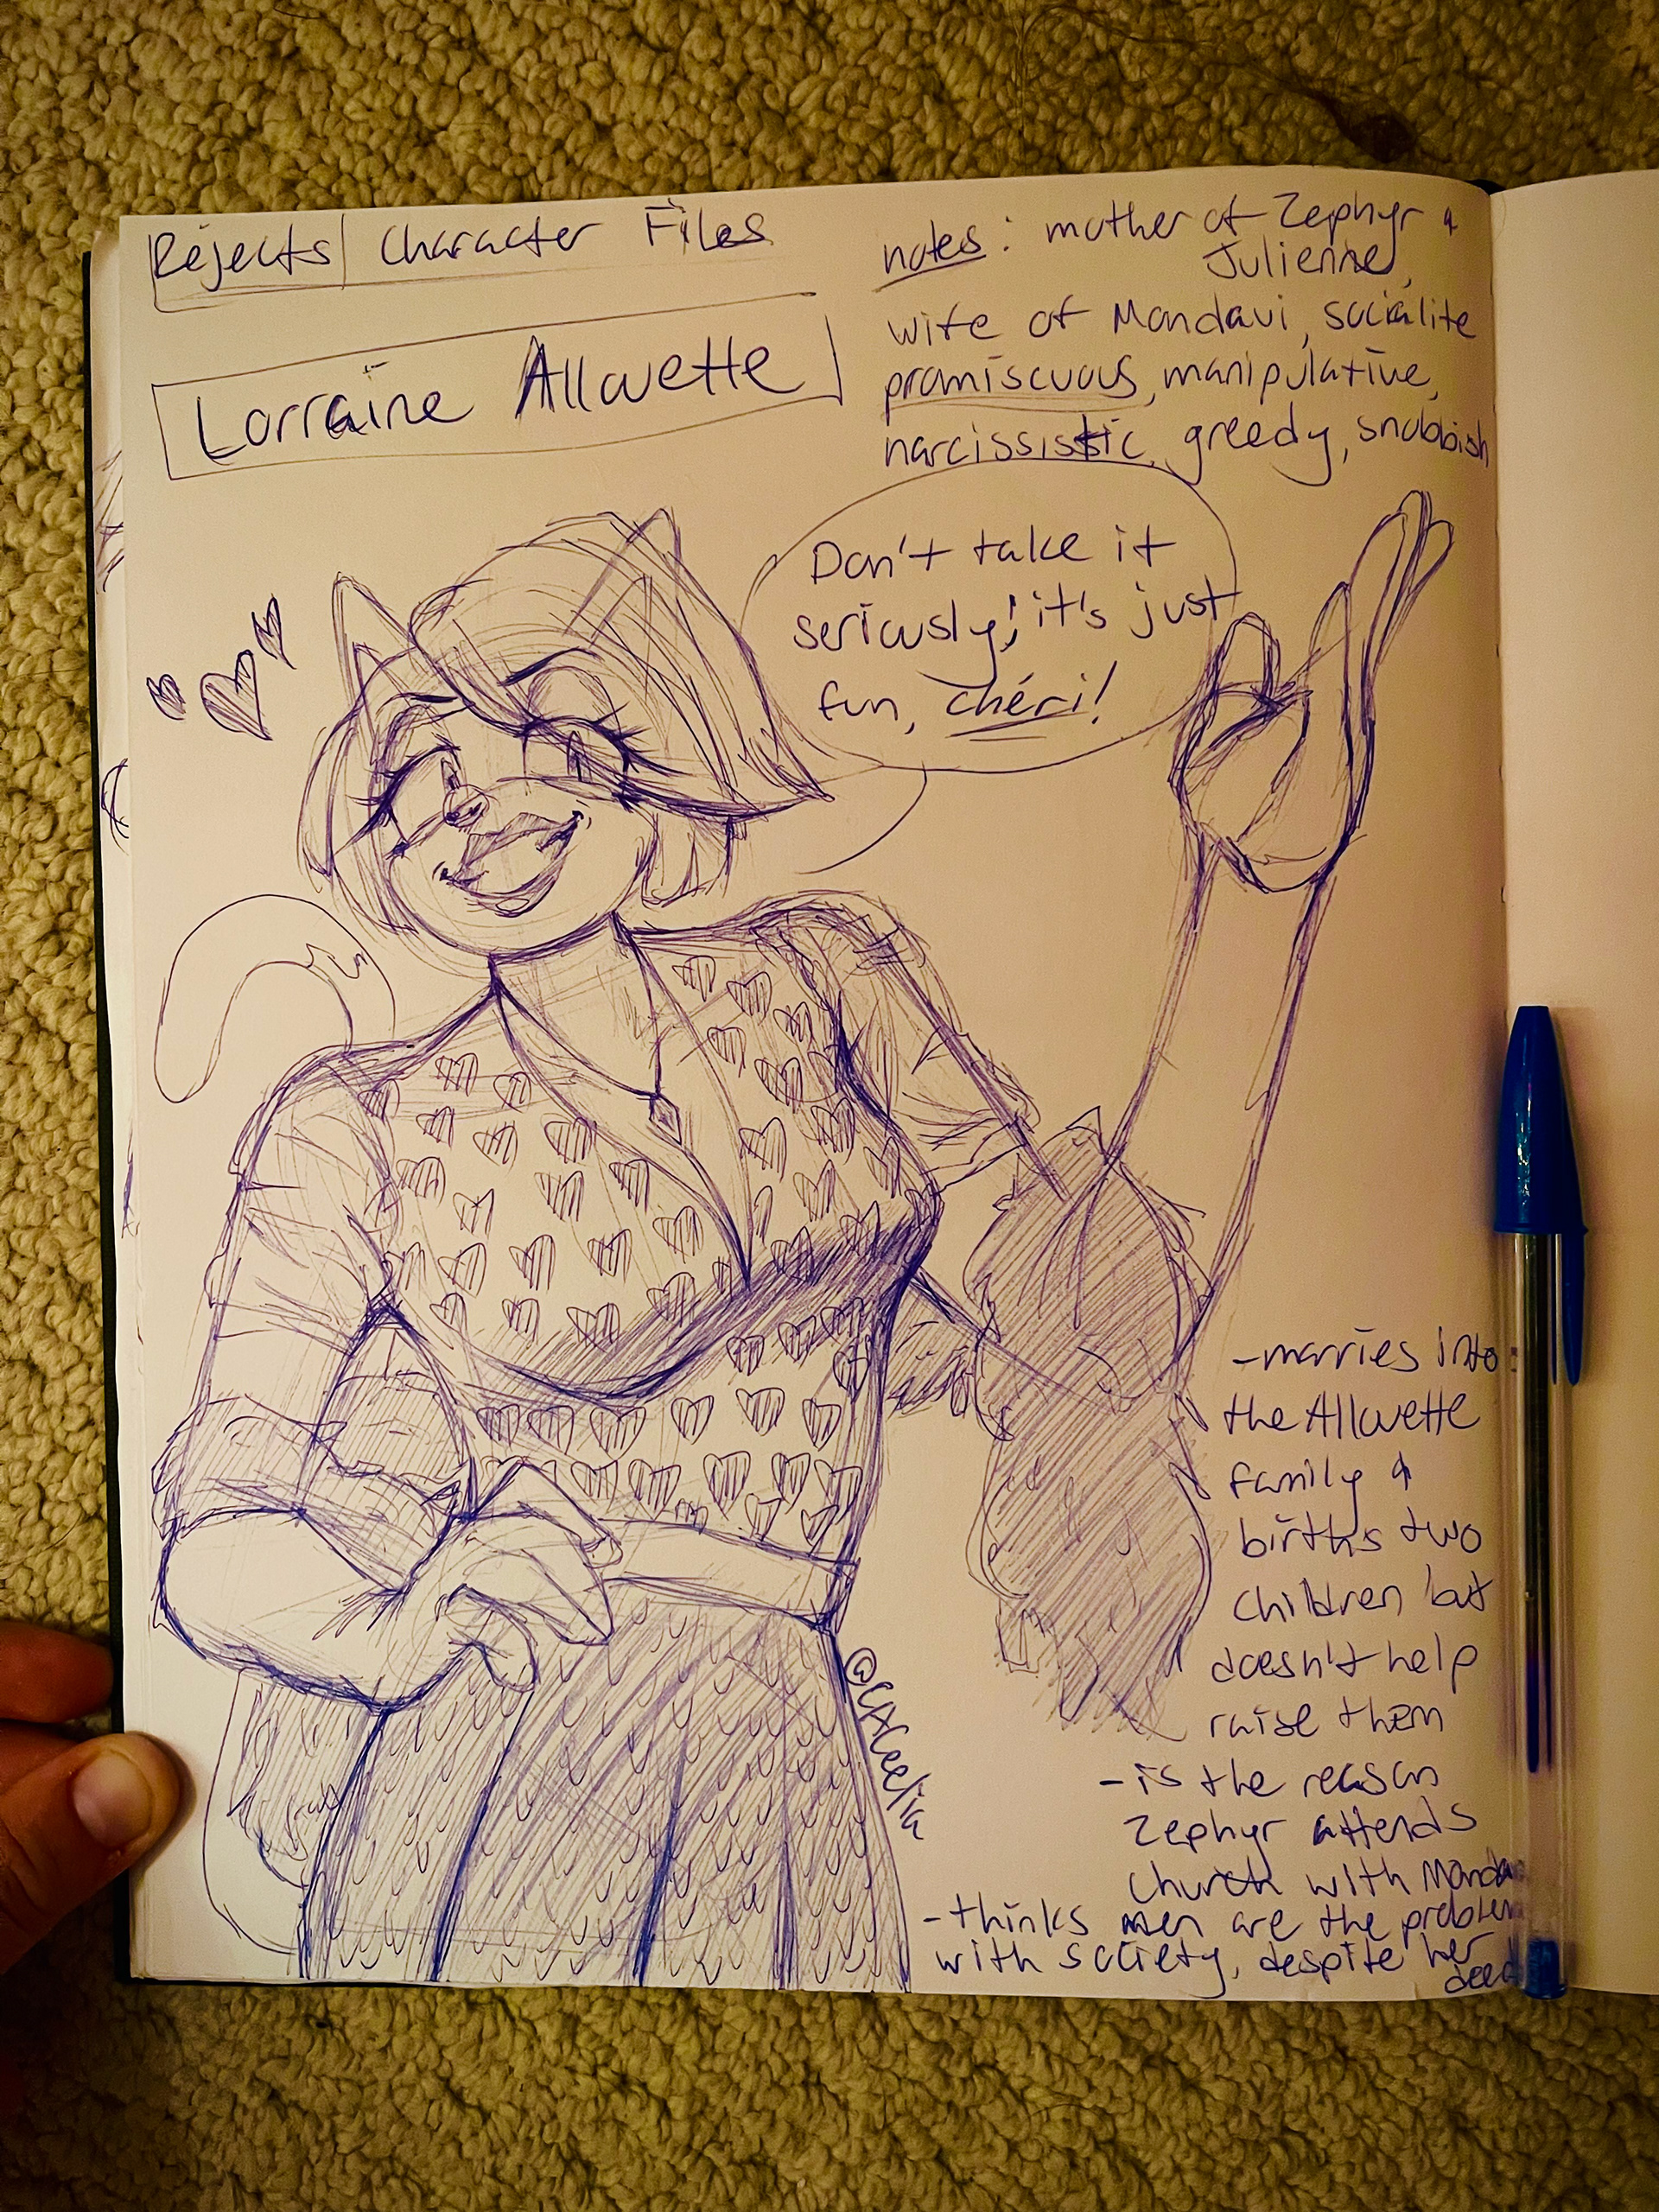 Rejects | Character Files
Lorraine Allouette
notes: mother of Zephyr &
Julienne,
wife of Mondavi, socialite
promiscuous, manipulative,
narcissistic, greedy, snobbish
Don't take it
seriously! it's just
fun, chéri!
-marries into
the Allouette
family &
births two
children but
doesn't help
raise them
-is the reason
Zephyr attends
church with
-thinks men are the problem
with society, despite her